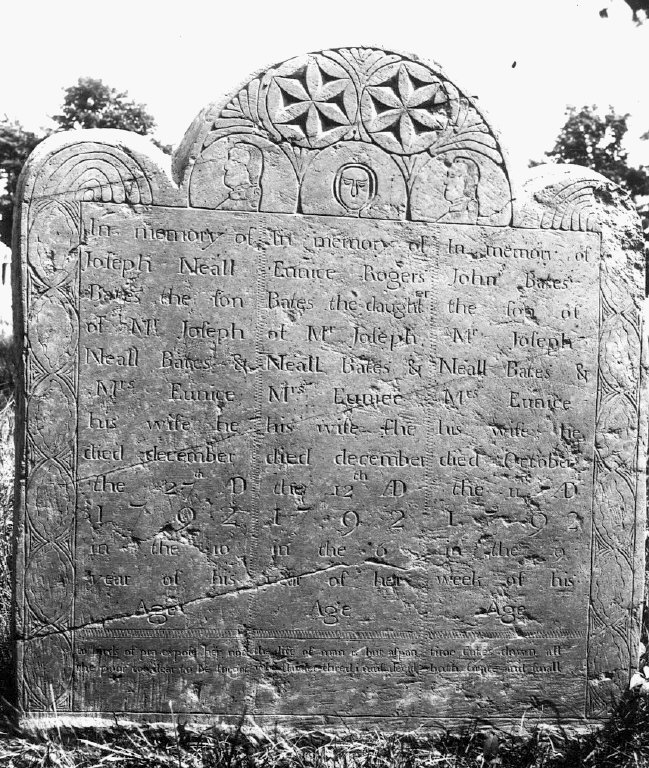 In memory of
Joseph Neall
Bates the son
of Mr Joseph
Neall Bates &
Mrs Eunice
his wife he
died december
the 27th AD
1792
in the 10
year of his
Age
In memory of
Eunice Rogers
Bates the daughtr
of Mr Joseph
Neall Bates &
Mrs Euniec
his wife she
died december
the 12th AD
1792
in the 6
year of her
Age
In memory of
John Bates
the son of
Mr Joseph
Neall Bates &
Mrs Eunice
his wife he
died October
the 11 AD
1792
in the 9
week of his
Age
the life of man is but a span
time takes down all
both Great and small